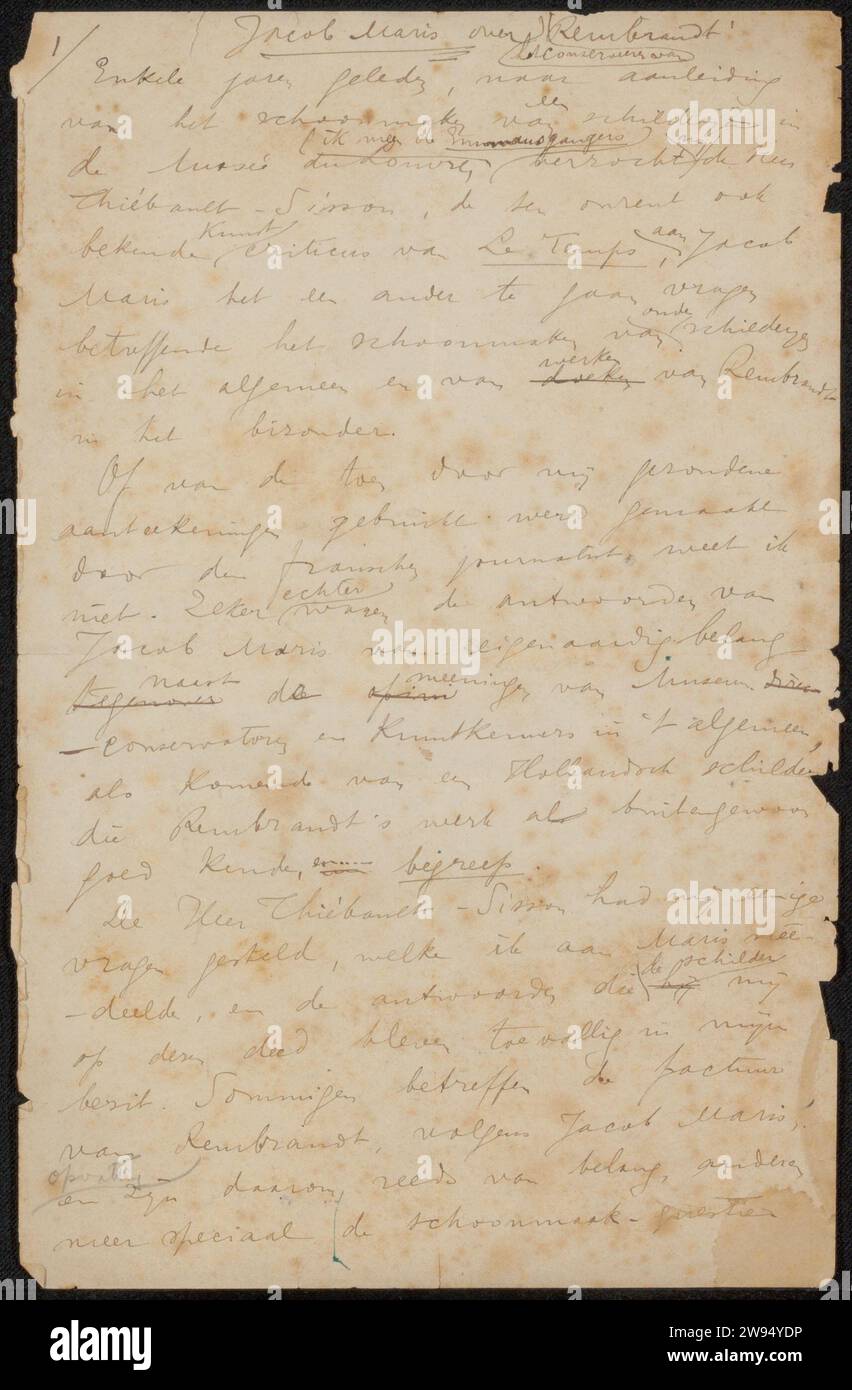 1/
Jacob Maris over Rembrandt!
het conserveeren van
Enkele jaren geleden, naar aanleiding
van het schoonmaken van een schilderij in
(ik meen de Emmausgangers)
de Musée du Louvre, verzocht mij de heer
Thiébault-Sisson, de ten onzent ook
bekende Kunstcriticus van Le Temps, aan Jacob
Maris het een ander te gaan vragen
betreffende het schoonmaken van oude schilderijen
in het algemeen en van doeken werken van Rembrandt
in het bizonder.
Of van de toen door mij gezondene
aanteekeningen gebruik werd gemaakt
door den franschen journalist, weet ik
niet. Zeker echter waren de antwoorden van
Jacob Maris van eigenaardig belang
tegenover naast de opinie meeningen van Museum
-conservatoren en Kunstkenners in 't algemeen,
als komende van een Hollandsch schilder
die Rembrandt's werk als buitengewoon
goed kende, en begreep.
De Heer Thiébault-Sisson had mij eenige
vragen gesteld, welke ik aan Maris mee-
-deelde, en de antwoorden die hij de schilder mij
op deze deed bleven toevallig in mijn
bezit. Sommigen betreffen de factuur
van Rembrandt, volgens Jacob Maris'
opvatting
en zijn daarom reeds van belang, anderen
meer speciaal de schoonmaak-questie
alamy
Image ID: 2W94YDP
www.alamy.com